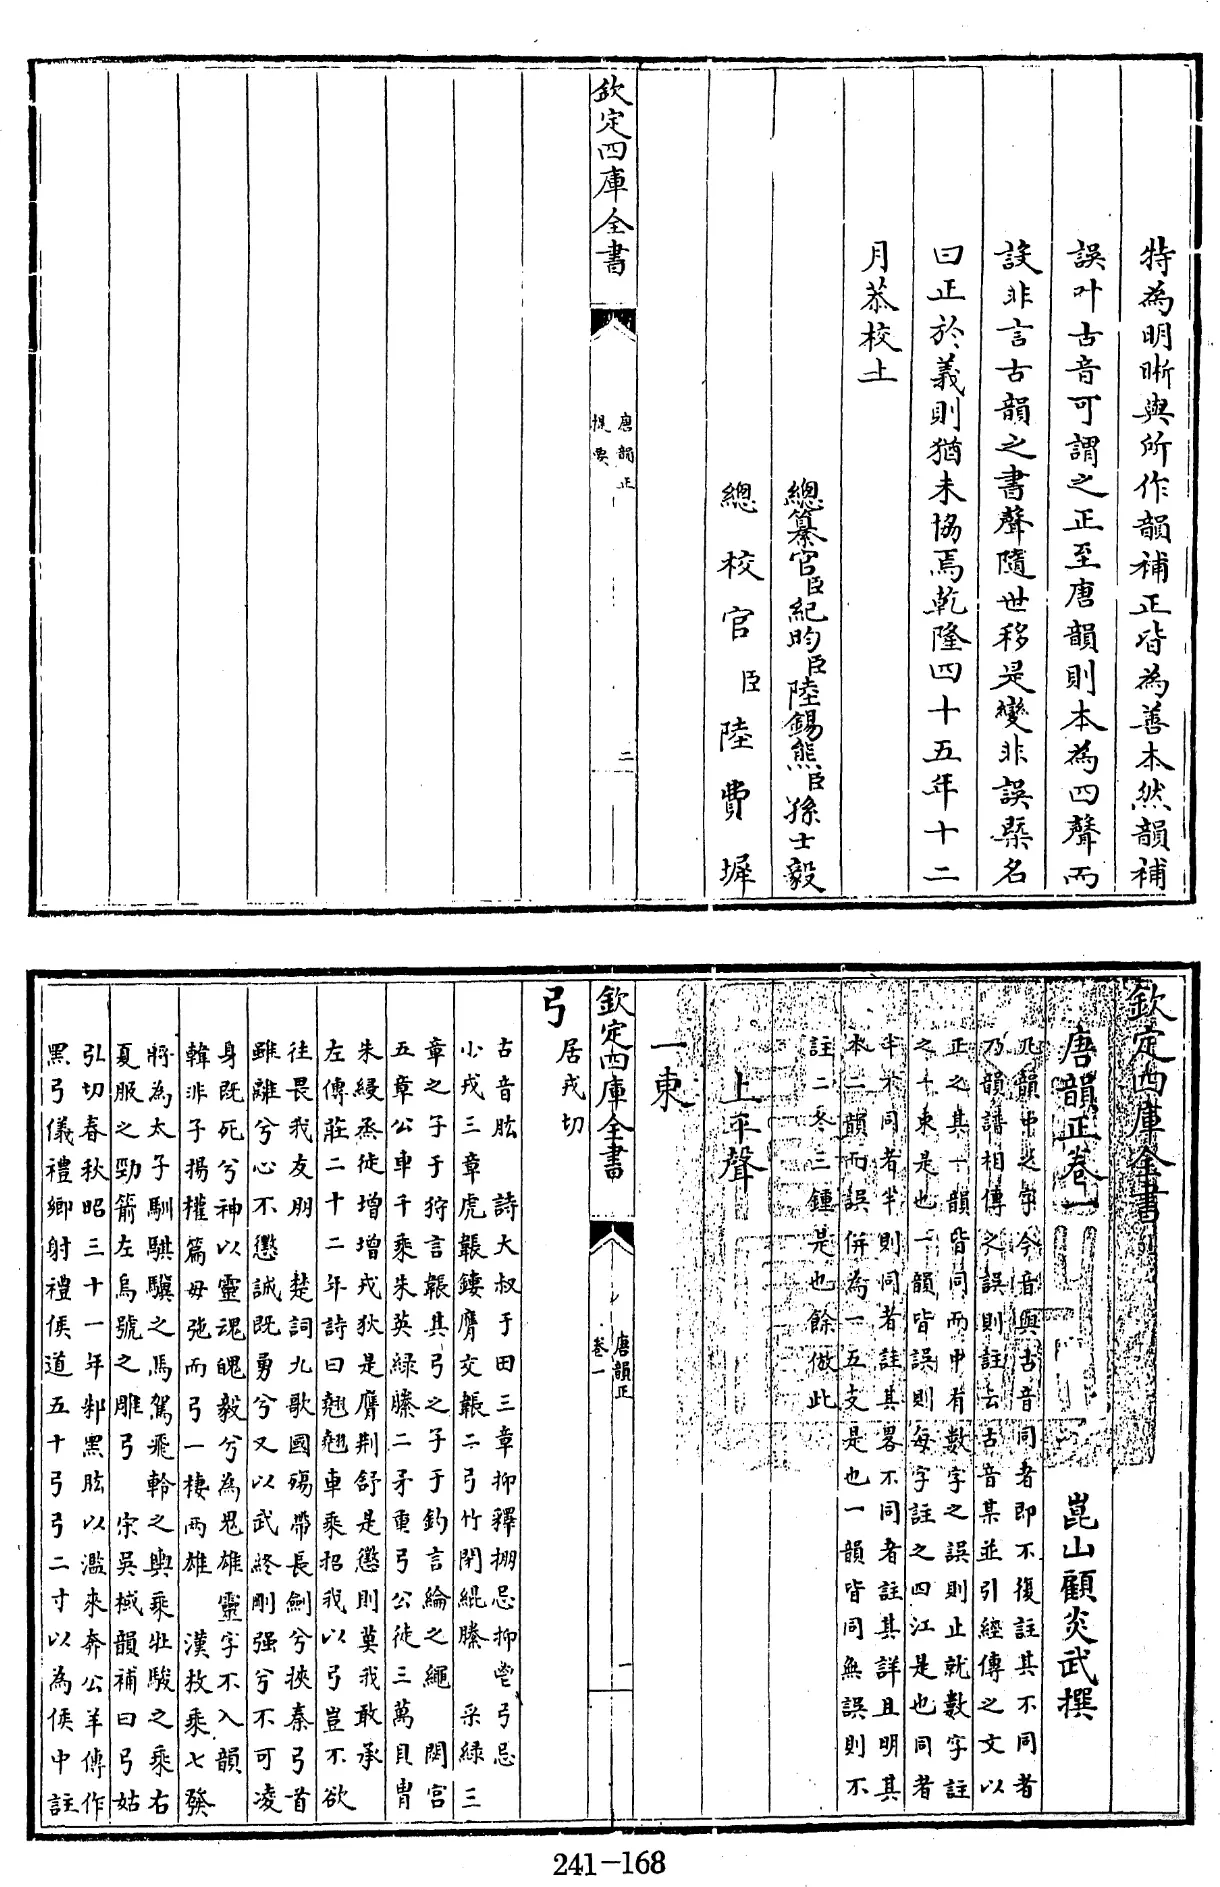 特為明晰與所作韻補正皆為善本然韻補
誤叶古音可謂之正至唐韻則本為四聲而
設非言古韻之書聲隨世移是變非誤槩名
曰正於義則猶未協焉乾隆四十五年十二
月恭校上
總纂官臣紀昀臣陸錫熊臣孫士毅
總校官臣陸費墀
欽定四庫全書
唐韻正
提要
二
欽定四庫全書
唐韻正卷一
崑山顧炎武撰
凡韻中之字今音與古音同者即不復註其不同者
乃韻譜相傳之誤則註云古音某並引經傳之文以
正之其一韻皆同而中有數字之誤則止就數字註
之一東是也一韻皆誤則每字註之四江是也同者
半不同者半則同者註其畧不同者註其詳且明其
本二韻而誤併為一五支是也一韻皆同無誤則不
註二冬三鍾是也餘倣此
上平聲
一東
欽定四庫全書
唐韻正
卷一
一
弓
居戎切
古音肱 詩大叔于田三章抑釋掤忌抑鬯弓忌
小戎三章虎韔鏤膺交韔二弓竹閉緄縢 采綠三
章之子于狩言韔其弓之子于釣言綸之繩 閟宮
五章公車千乘朱英綠縢二矛重弓公徒三萬貝冑
朱綅烝徒增增戎狄是膺荆舒是懲則莫我敢承
左傳莊二十二年詩曰翹翹車乘招我以弓豈不欲
往畏我友朋 楚詞九歌國殤帶長劍兮挾秦弓首
雖離兮心不懲誠既勇兮又以武終剛强兮不可凌
身既死兮神以靈魂魄毅兮為鬼雄 靈字不入韻
韓非子揚權篇毋弛而弓一棲兩雄 漢枚乘七發
將為太子馴騏驥之馬駕飛軨之輿乘壯駿之乘右
夏服之勁箭左烏號之雕弓 宋吳棫韻補曰弓姑
弘切春秋昭三十一年邾黑肱以濫來奔公羊傳作
黑弓儀禮鄉射禮侯道五十弓弓二寸以為侯中註
241-168